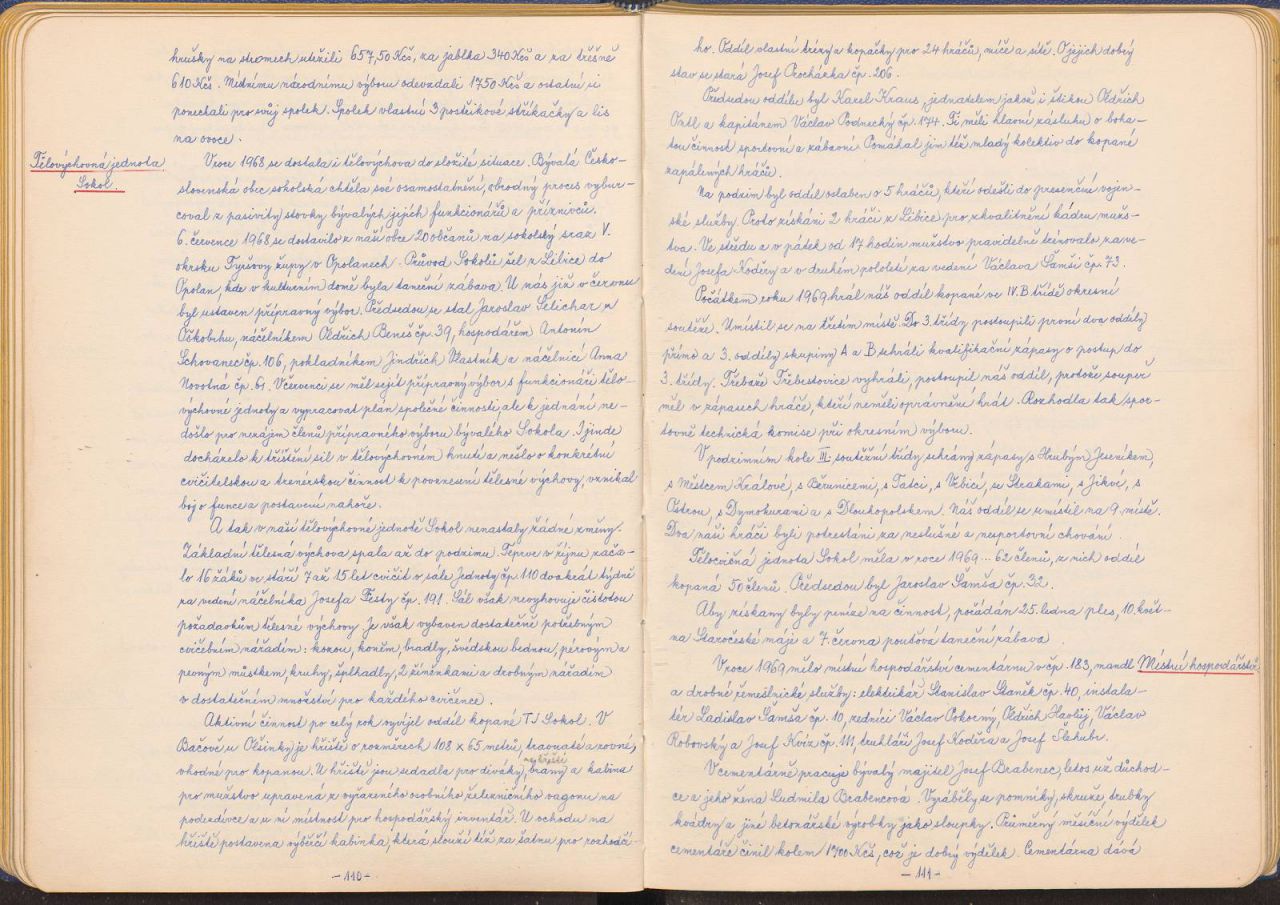 hrušky na stromech utržili 657,50 Kčs, za jablka 340 Kčs a za třešně
610 Kčs. Místnímu národnímu výboru odevzdali 1750 Kčs a ostatní si
ponechali pro svůj spolek. Spolek vlastní 3 postřikové stříkačky a lis
na ovoce.
Tělovýchovná jednota
Sokol.
V roce 1968 se dostala i tělovýchova do složité situace. Bývalá Česko-
slovenská obec sokolská chtěla své osamostatnění, obrodný proces vybur-
coval z pasivity stovky bývalých jejích funkcionářů a příznivců.
6. července 1968 se dostavilo z naší obce 20 občanů na sokolský sraz V.
okrsku Tyršovy župy v Opolanech. Průvod Sokolů šel z Libice do
Opolan, kde v kulturním domě byla taneční zábava. U nás již v červnu
byl ustaven přípravný výbor. Předsedou se stal Jaroslav Šelichar z
Oškobrhu, náčelníkem Oldřich Beneš čp. 39, hospodářem Antonín
Schovanec čp. 106, pokladníkem Jindřich Vlastník a náčelnicí Anna
Novotná čp. 61. V červenci se měl sejít přípravný výbor s funkcionáři tělo-
výchovné jednoty a vypracovat plán společné činnosti, ale k jednání ne-
došlo pro nezájem členů přípravného výboru bývalého Sokola. I jinde
docházelo k tříštění sil v tělovýchovném hnutí a nešlo o konkrétní
cvičitelskou a trenérskou činnost k povznesení tělesné výchovy, vznikal
boj o funkce a postavení nahoře.
A tak v naší tělovýchovné jednotě Sokol nenastaly žádné změny.
Základní tělesná výchova spala až do podzimu. Teprve v říjnu zača-
lo 16 žáků ve stáří 7 až 15 let cvičit v sále Jednoty čp. 110 dvakrát týdně
za vedení náčelníka Josefa Festy čp. 191. Sál však nevyhovuje čistotou
požadavkům tělesné výchovy. Je však vybaven dostatečně potřebným
cvičebním nářadím: kozou, koněm, bradly, švédskou bednou, pérovým a
pevným můstkem, kruhy, šplhadly, 2 žíněnkami a drobným nářadím
v dostatečném množství pro každého cvičence.
Aktivní činnost po celý rok vyvíjel oddíl kopané TJ Sokol. V
Bačově u Olšinky je hřiště o rozměrech 108 x 65 metrů, travnaté a rovné,
vhodné pro kopanou. U hřiště jsou sedadla pro diváky, brány a kabina
pro mužstvo upravená z vyřazeného osobního železničního vagonu na
podezdívce a u ní místnost pro hospodářský inventář. U vchodu na
hřiště postavena výběrčí kabinka, která slouží též za šatnu pro rozhodčí-
-110-
ho. Oddíl vlastní trézy a kopačky pro 24 hráčů, míče a sítě. O jejich dobrý
stav se stará Josef Procházka čp. 206.
Předsedou oddílu byl Karel Kraus, jednatelem jakož i štikou Oldřich
Ortl a kapitánem Václav Podnecký čp. 174. Ti měli hlavní zásluhu o boha-
tou činnost sportovní a zábavní. Pomáhal jim též mladý kolektiv do kopané
zapálených hráčů.
Na podzim byl oddíl oslaben o 5 hráčů, kteří odešli do presenční vojen-
ské služby. Proto získáni 2 hráči z Libice pro zkvalitnění kádru mužs-
tva. Ve středu a v pátek od 17 hodin mužstvo pravidelně trénovalo za ve-
dení Josefa Koděry a v druhém pololetí za vedení Václava Šamši čp. 73.
Počátkem roku 1969 hrál náš oddíl kopané ve IV. B třídě okresní
soutěže. Umístil se na třetím místě. Do 3. třídy postoupili první dva oddíly
přímo a 3. oddíly skupiny A a B sehráli kvalifikační zápasy o postup do
3. třídy. Třebaže Třebestovice vyhráli, postoupil náš oddíl, protože soupeř
měl v zápasech hráče, kteří neměli oprávnění hrát. Rozhodla tak spor-
tovně technická komise při okresním výboru.
V podzimním kole III. soutěžní třídy sehrány zápasy s Hrubým Jeseníkem,
s Městcem Králové, s Běrunicemi, s Tatci, s Vrbicí, se Strakami, s Jíkví, s
Ostrou, s Dymokurami a s Dlouhopolskem. Náš oddíl se umístil na 9. místě.
Dva naši hráči byli potrestáni za neslušné a nesportovní chování.
Tělocvičná jednota Sokol měla v roce 1969... 62 členů, z nich oddíl
kopaná 50 členů. Předsedou byl Jaroslav Šamša čp. 32.
Aby získány byly peníze na činnost, pořádán 25. ledna ples, 10. květ-
na Staročeské máje a 7. června pouťová taneční zábava.
V roce 1969 mělo místní hospodářství cementárnu v čp. 183, mandl
Místní hospodářství
a drobné řemeslnické služby: elektrikář Stanislav Staněk čp. 40, instala-
tér Ladislav Šamša čp. 10, zedníci Václav Pokorný, Oldřich Havlůj, Václav
Robovský a Josef Kvíz čp. 111, truhláři Josef Koděra a Josef Šlehubr.
V cementárně pracuje bývalý majitel Josef Brabenec, letos už důchod-
ce a jeho žena Ludmila Brabencová. Vyráběly se pomníky, skruže, trubky
kvádry a jiné betonářské výrobky jako sloupky. Průměrný měsíční výdělek
cementáře činil kolem 1900 Kčs, což je dobrý výdělek. Cementárna dává
-111-